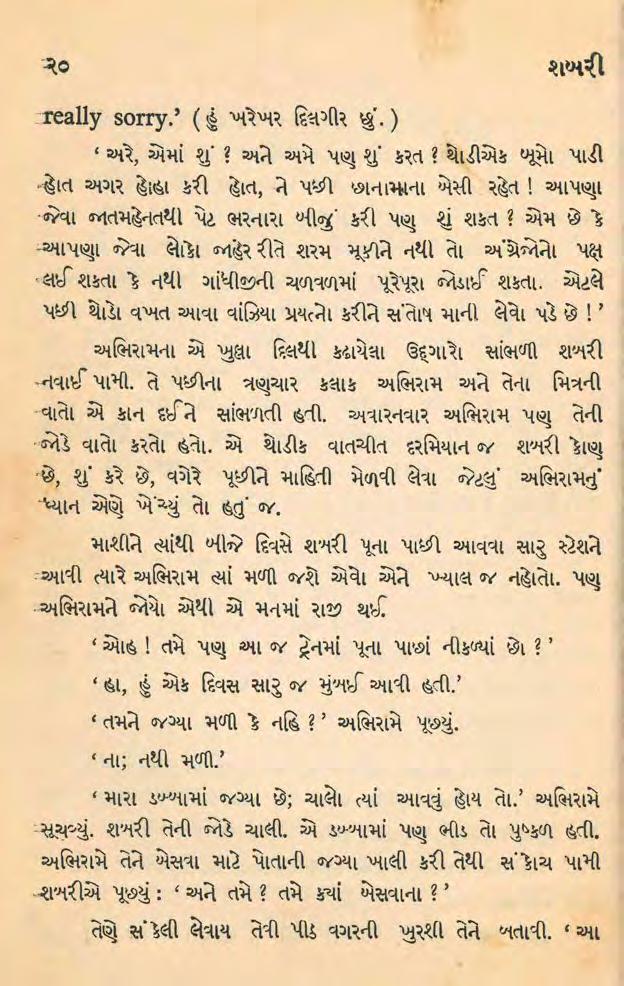 ૨૦ શબરી
really sorry.’ ( હું ખરેખર દિલગીર છું. )
‘ અરે, એમાં શું ? અને અમે પણ શું કરત ? થોડીએક બૂમો પાડી
હોત અગર હોહા કરી હોત, ને પછી છાનામાના બેસી રહેત ! આપણા
જેવા જાતમહેનતથી પેટ ભરનારા બીજું કરી પણ શું શકત ? એમ છે કે
આપણા જેવા લોકો જાહેર રીતે શરમ મૂકીને નથી તો અંગ્રેજોનો પક્ષ
લઈ શકતા કે નથી ગાંધીજીની ચળવળમાં પૂરેપૂરા જોડાઈ શકતા. એટલે
પછી થોડો વખત આવા વાંઝિયા પ્રયત્નો કરીને સંતોષ માની લેવો પડે છે ! ’
અભિરામના એ ખુલ્લા દિલથી કઢાયેલા ઉદ્ગારો સાંભળી શબરી
નવાઈ પામી. તે પછીના ત્રણચાર કલાક અભિરામ અને તેના મિત્રની
વાતો એ કાન દઈને સાંભળતી હતી. અવારનવાર અભિરામ પણ તેની
જોડે વાતો કરતો હતો. એ થોડીક વાતચીત દરમિયાન જ શબરી કોણ
છે, શું કરે છે, વગેરે પૂછીને માહિતી મેળવી લેવા જેટલું અભિરામનું
ધ્યાન એણે ખેંચ્યું તો હતું જ.
માશીને ત્યાંથી બીજે દિવસે શબરી પૂના પાછી આવવા સારુ સ્ટેશને
આવી ત્યારે અભિરામ ત્યાં મળી જશે એવો એને ખ્યાલ જ નહોતો. પણ
અભિરામને જોયો એથી એ મનમાં રાજી થઈ.
‘ ઓહ ! તમે પણ આ જ ટ્રેનમાં પૂના પાછાં નીકળ્યાં છો ? ’
‘ હા, હું એક દિવસ સારુ જ મુંબઈ આવી હતી.’
‘ તમને જગ્યા મળી કે નહિ ? ’ અભિરામે પૂછ્યું.
‘ ના; નથી મળી.’
‘ મારા ડબ્બામાં જગ્યા છે; ચાલો ત્યાં આવવું હોય તો.’ અભિરામે
સૂચવ્યું. શબરી તેની જોડે ચાલી. એ ડબ્બામાં પણ ભીડ તો પુષ્કળ હતી.
અભિરામે તેને બેસવા માટે પોતાની જગ્યા ખાલી કરી તેથી સંકોચ પામી
શબરીએ પૂછ્યું : ‘ અને તમે ? તમે ક્યાં બેસવાના ? ’
તેણે સંકેલી લેવાય તેવી પીઠ વગરની ખુરશી તેને બતાવી. ‘ આ